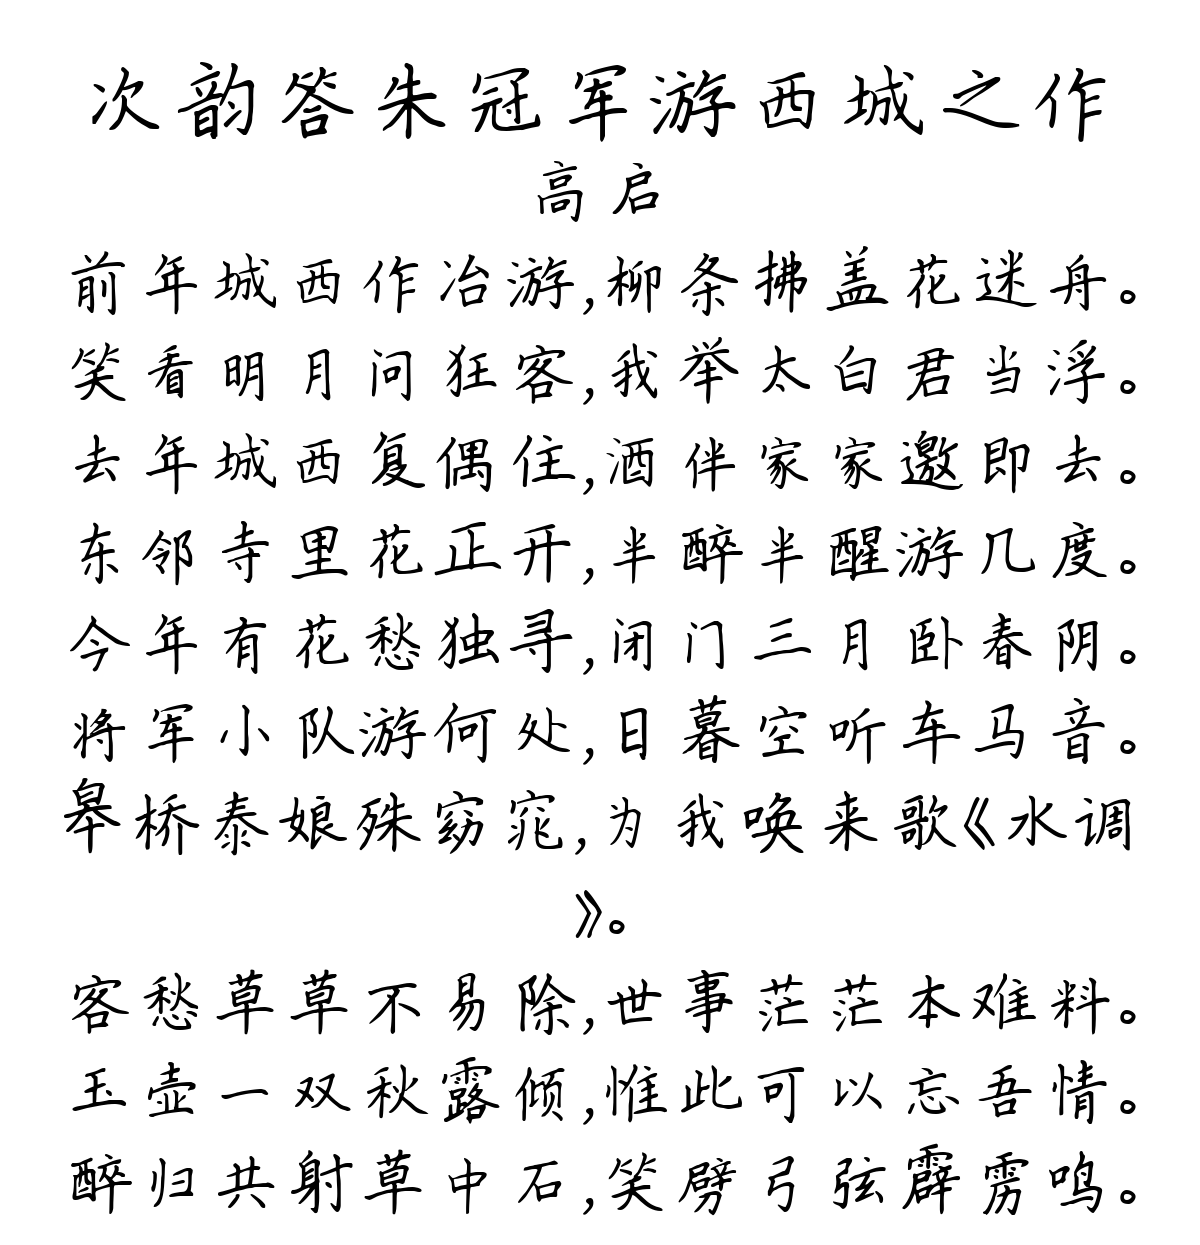 次韵答朱冠军游西城之作
高启
前年城西作冶游,柳条拂盖花迷舟。
笑看明月问狂客,我举太白君当浮。
去年城西复偶住,酒伴家家邀即去。
东邻寺里花正开,半醉半醒游几度。
今年有花愁独寻,闭门三月卧春阴。
将军小队游何处,日暮空听车马音。
皋桥泰娘殊窈窕,为我唤来歌《水调
》。
客愁草草不易除,世事茫茫本难料。
玉壶一双秋露倾,惟此可以忘吾情。
醉归共射草中石,笑劈弓弦霹雳鸣。